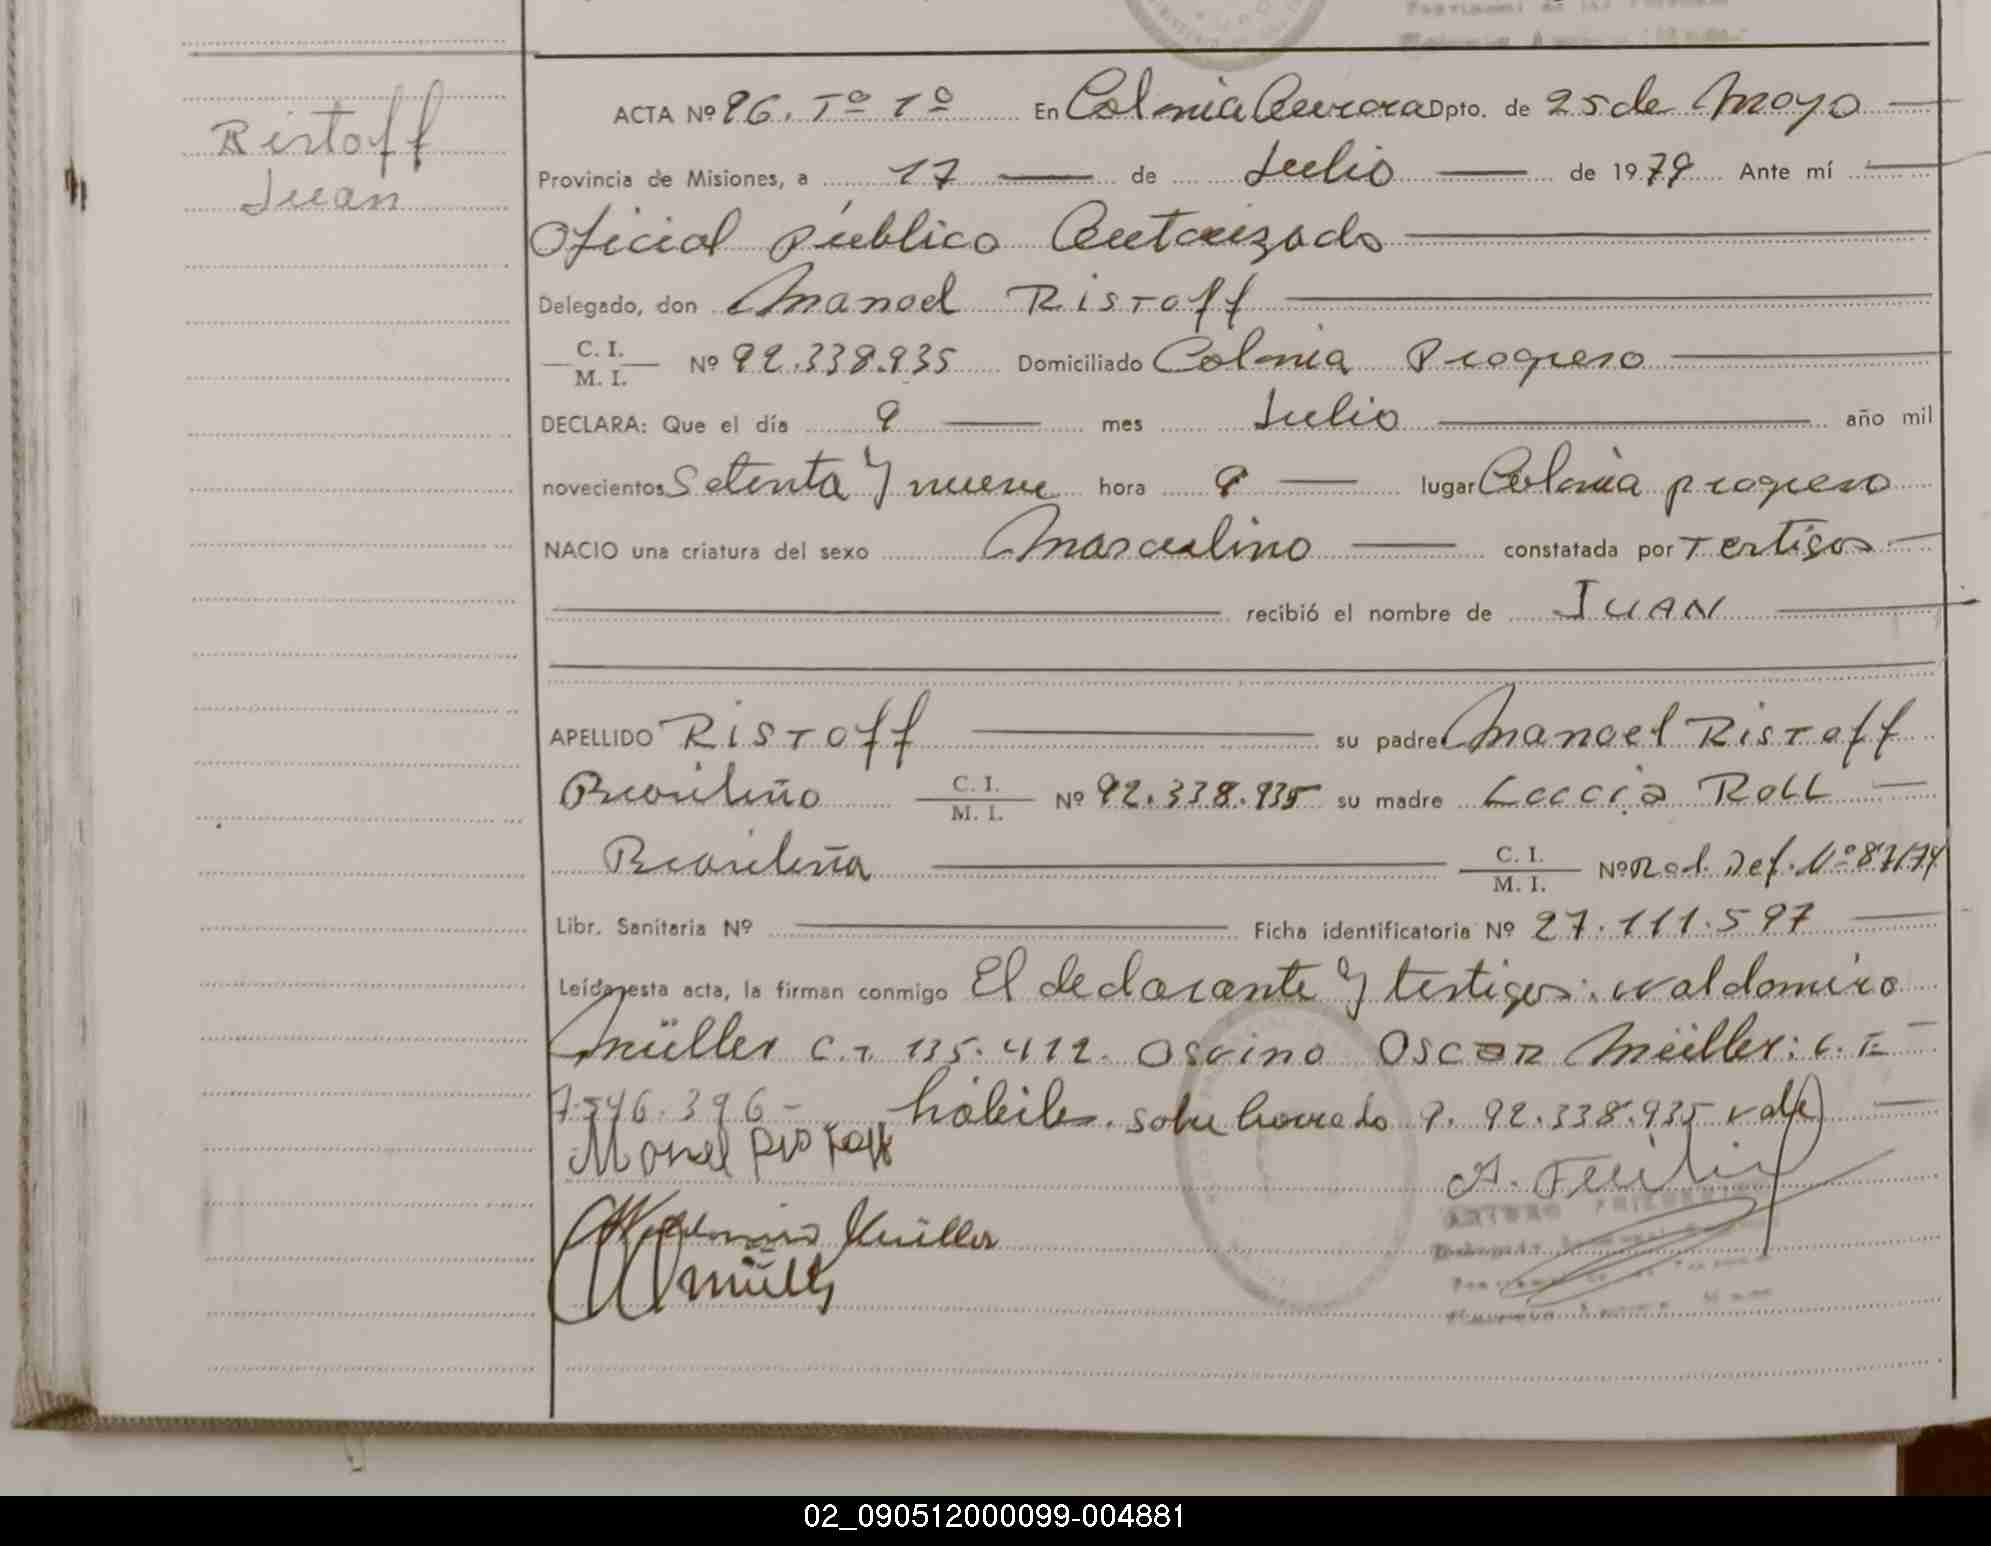 Ristoff
Juan
ACTA Nº 96. Tº 1º En Colonia Aurora Dpto. de 25 de Mayo
Provincia de Misiones, a 17 de Julio de 1979 Ante mí
Oficial público Autorizado
Delegado, don Manoel Ristoff
C. I.
M. I. Nº 92.338.935 Domiciliado Colonia Progreso
DECLARA: Que el día 9 mes Julio año mil
novecientos Setenta y nueve hora 9 lugar Colonia progreso
NACIO una criatura del sexo Masculino constatada por Testigos
recibió el nombre de JUAN
APELLIDO Ristoff su padre Manoel Ristoff
Brasileño C. I. M. I. Nº 92.338.935 su madre Loccia Roll
Brasileña C. I. M. I. Nº Rad. Def. Nº 87/74
Libr. Sanitaria Nº Ficha identificatoria Nº 27.111.597
Leída esta acta, la firman conmigo El declarante y testigos: Waldomiro
Müller C.I. 135.412. Osvino Oscar Müller: C.I.
7.546.396- hábiles. sobre borrado 9. 92.338.935 vale
Manoel Ristoff
A.
Müller
Müller
02_090512000099-004881